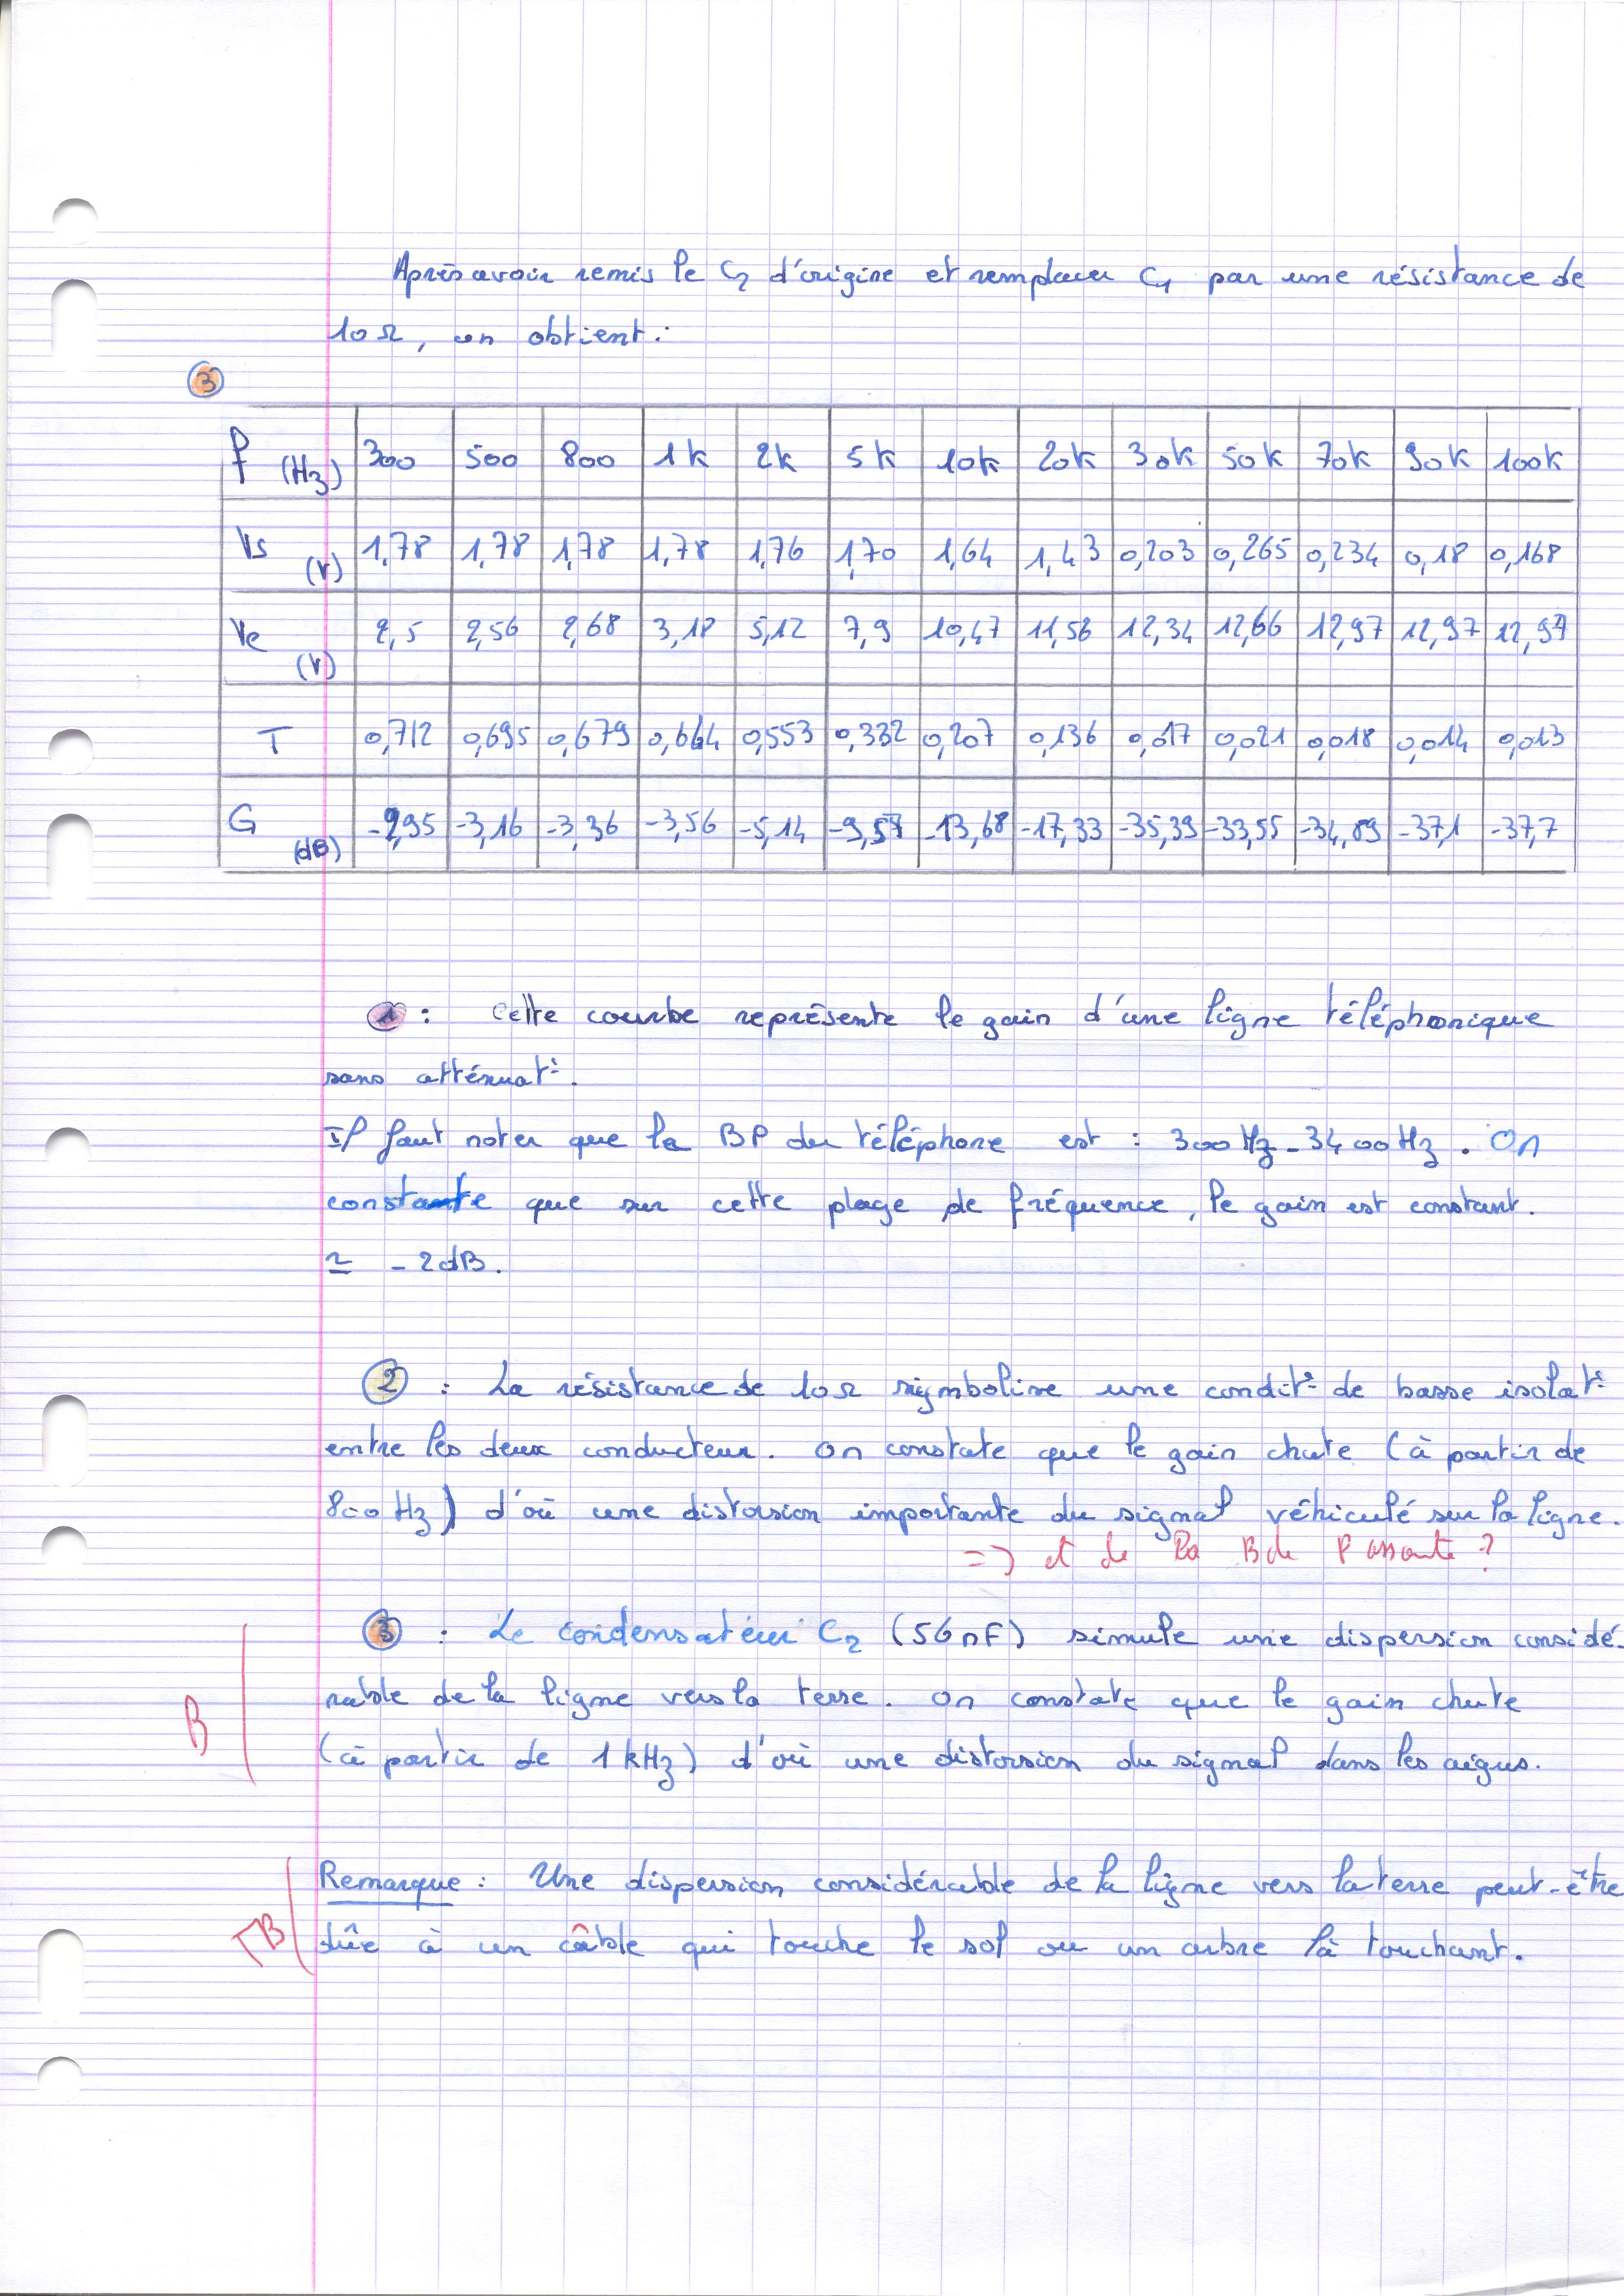 Après avoir remis le C2 d'origine et remplacer C1 par une résistance de
10 Ω, on obtient :
3
f (Hz) 300 500 800 1k 2k 5k 10k 20k 30k 50k 70k 90k 100k
Vs (V) 1,78 1,78 1,78 1,78 1,76 1,70 1,64 1,43 0,203 0,265 0,234 0,18 0,168
Ve (V) 2,5 2,56 2,68 3,18 5,12 7,9 10,47 11,56 12,34 12,66 12,97 12,97 12,97
T 0,712 0,695 0,679 0,664 0,553 0,332 0,207 0,136 0,017 0,021 0,018 0,014 0,013
G (dB) -2,95 -3,16 -3,36 -3,56 -5,14 -9,57 -13,68 -17,33 -35,39 -33,55 -34,89 -37,1 -37,7
1 : Cette courbe représente le gain d'une ligne téléphonique
sans atténuat°.
Il faut noter que la BP du téléphone est : 300 Hz - 3400 Hz. On
constante que sur cette plage de fréquence, le gain est constant.
≃ - 2 dB.
2 : La résistance de 10 Ω symbolise une condit° de basse isolat°
entre les deux conducteur. On constate que le gain chute (à partir de
800 Hz) d'où une distorsion importante du signal véhiculé sur la ligne.
=> et de la Bde Passante ?
3 : Le condensateur C2 (56nF) simule une dispersion considé-
rable de la ligne vers la terre. On constate que le gain chute
B (à partir de 1 kHz) d'où une distorsion du signal dans les aigus.
Remarque : Une dispersion considérable de la ligne vers la terre peut-être
TB dûe à un câble qui touche le sol ou un arbre la touchant.